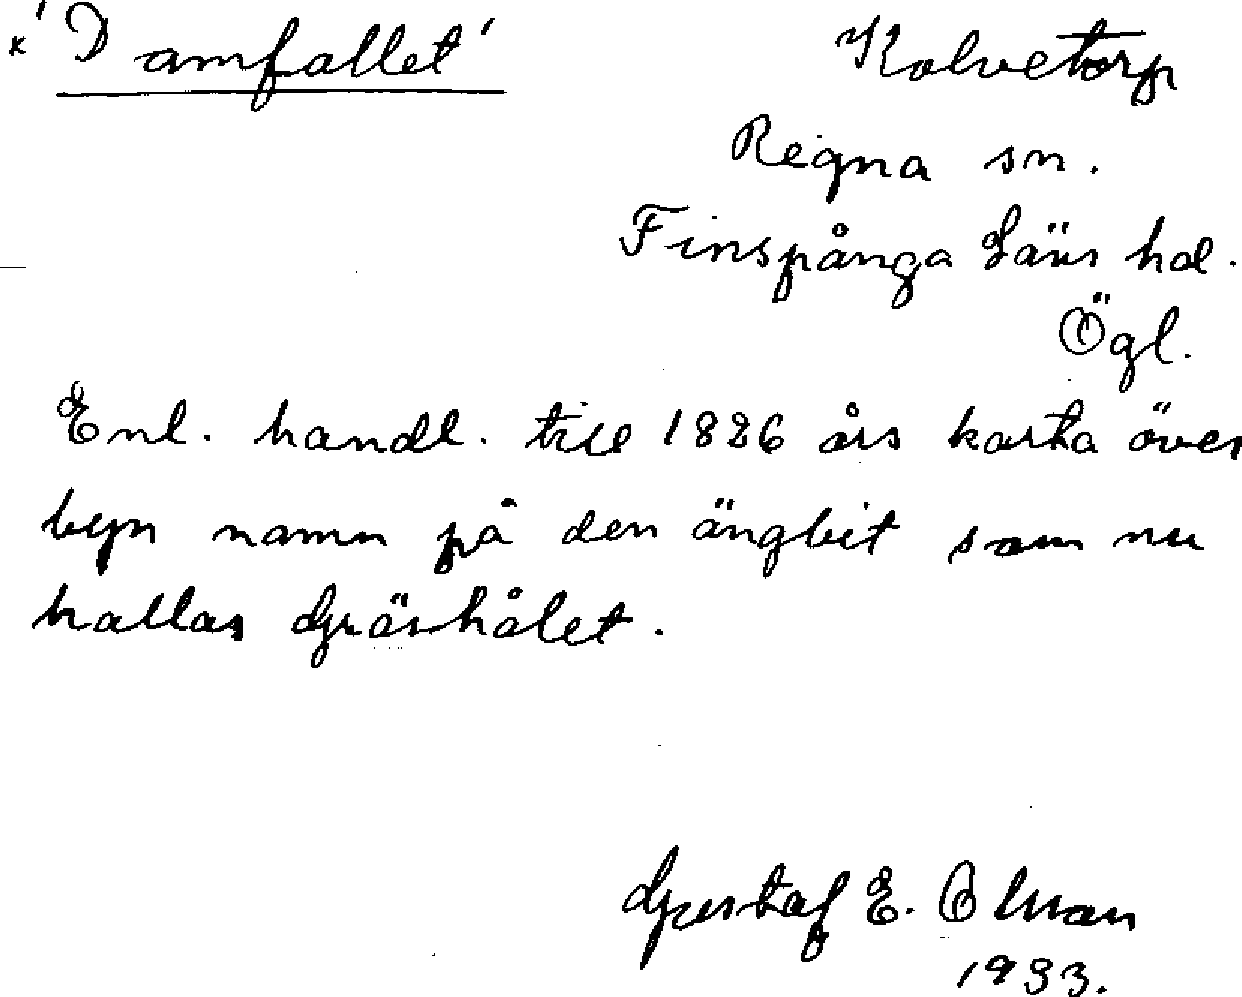 x 'Damfallet'
Kolvetorp
Regna sn.
Finspånga Läns hd.
Ögl.
Enl. handl. till 1826 års karta över
byn namn på den ängbit som nu
kallas Gräshålet.
Gustaf E. Olman
1933.